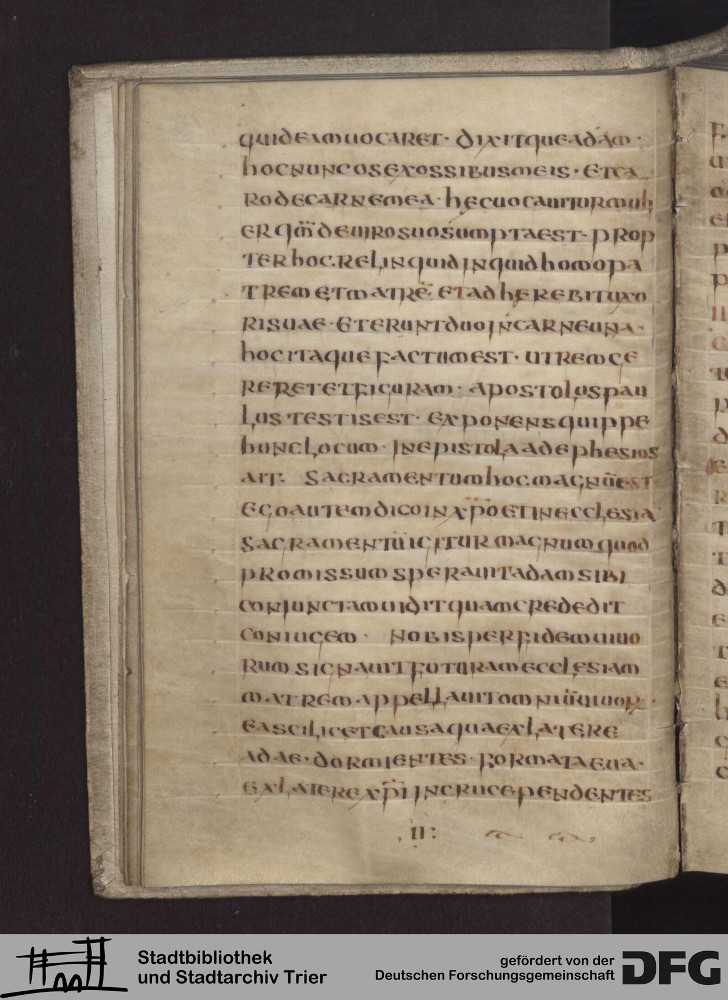 quid eam uocaret · dixitque adam ·
hoc nunc os ex ossibus meis · et ca
ro de carne mea · hec uocauitur muli
er qm̄ de uiro suo sumpta est · prop
ter hoc relinquid inquid homo pa
trem et matrē et adherebit uxo
ri suae · et erunt duo in carne una ·
hoc itaque factum est · ut rem ce
reret et figuram · apostolus pau
lus testis est · exponens quippe
hunc locum · in epistola ad ephesios
ait · sacramentum hoc magnū est
ego autem dico in xp̄o et in ecclesia
sacramentū igitur magnum quod
promissum sperauit adam sibi
coniunctam uidit quam credidit
coniugem · nobis per fidem uiuo
rum signauit futuram ecclesiam
matrem appellauit omniū uiuor ·
ea scilicet causa quae x latere
adae · dormientes · formata eua ·
ex latere xp̄i in cruce pendentes
· II :
Stadtbibliothek
und Stadtarchiv Trier
gefördert von der
Deutschen Forschungsgemeinschaft
DFG